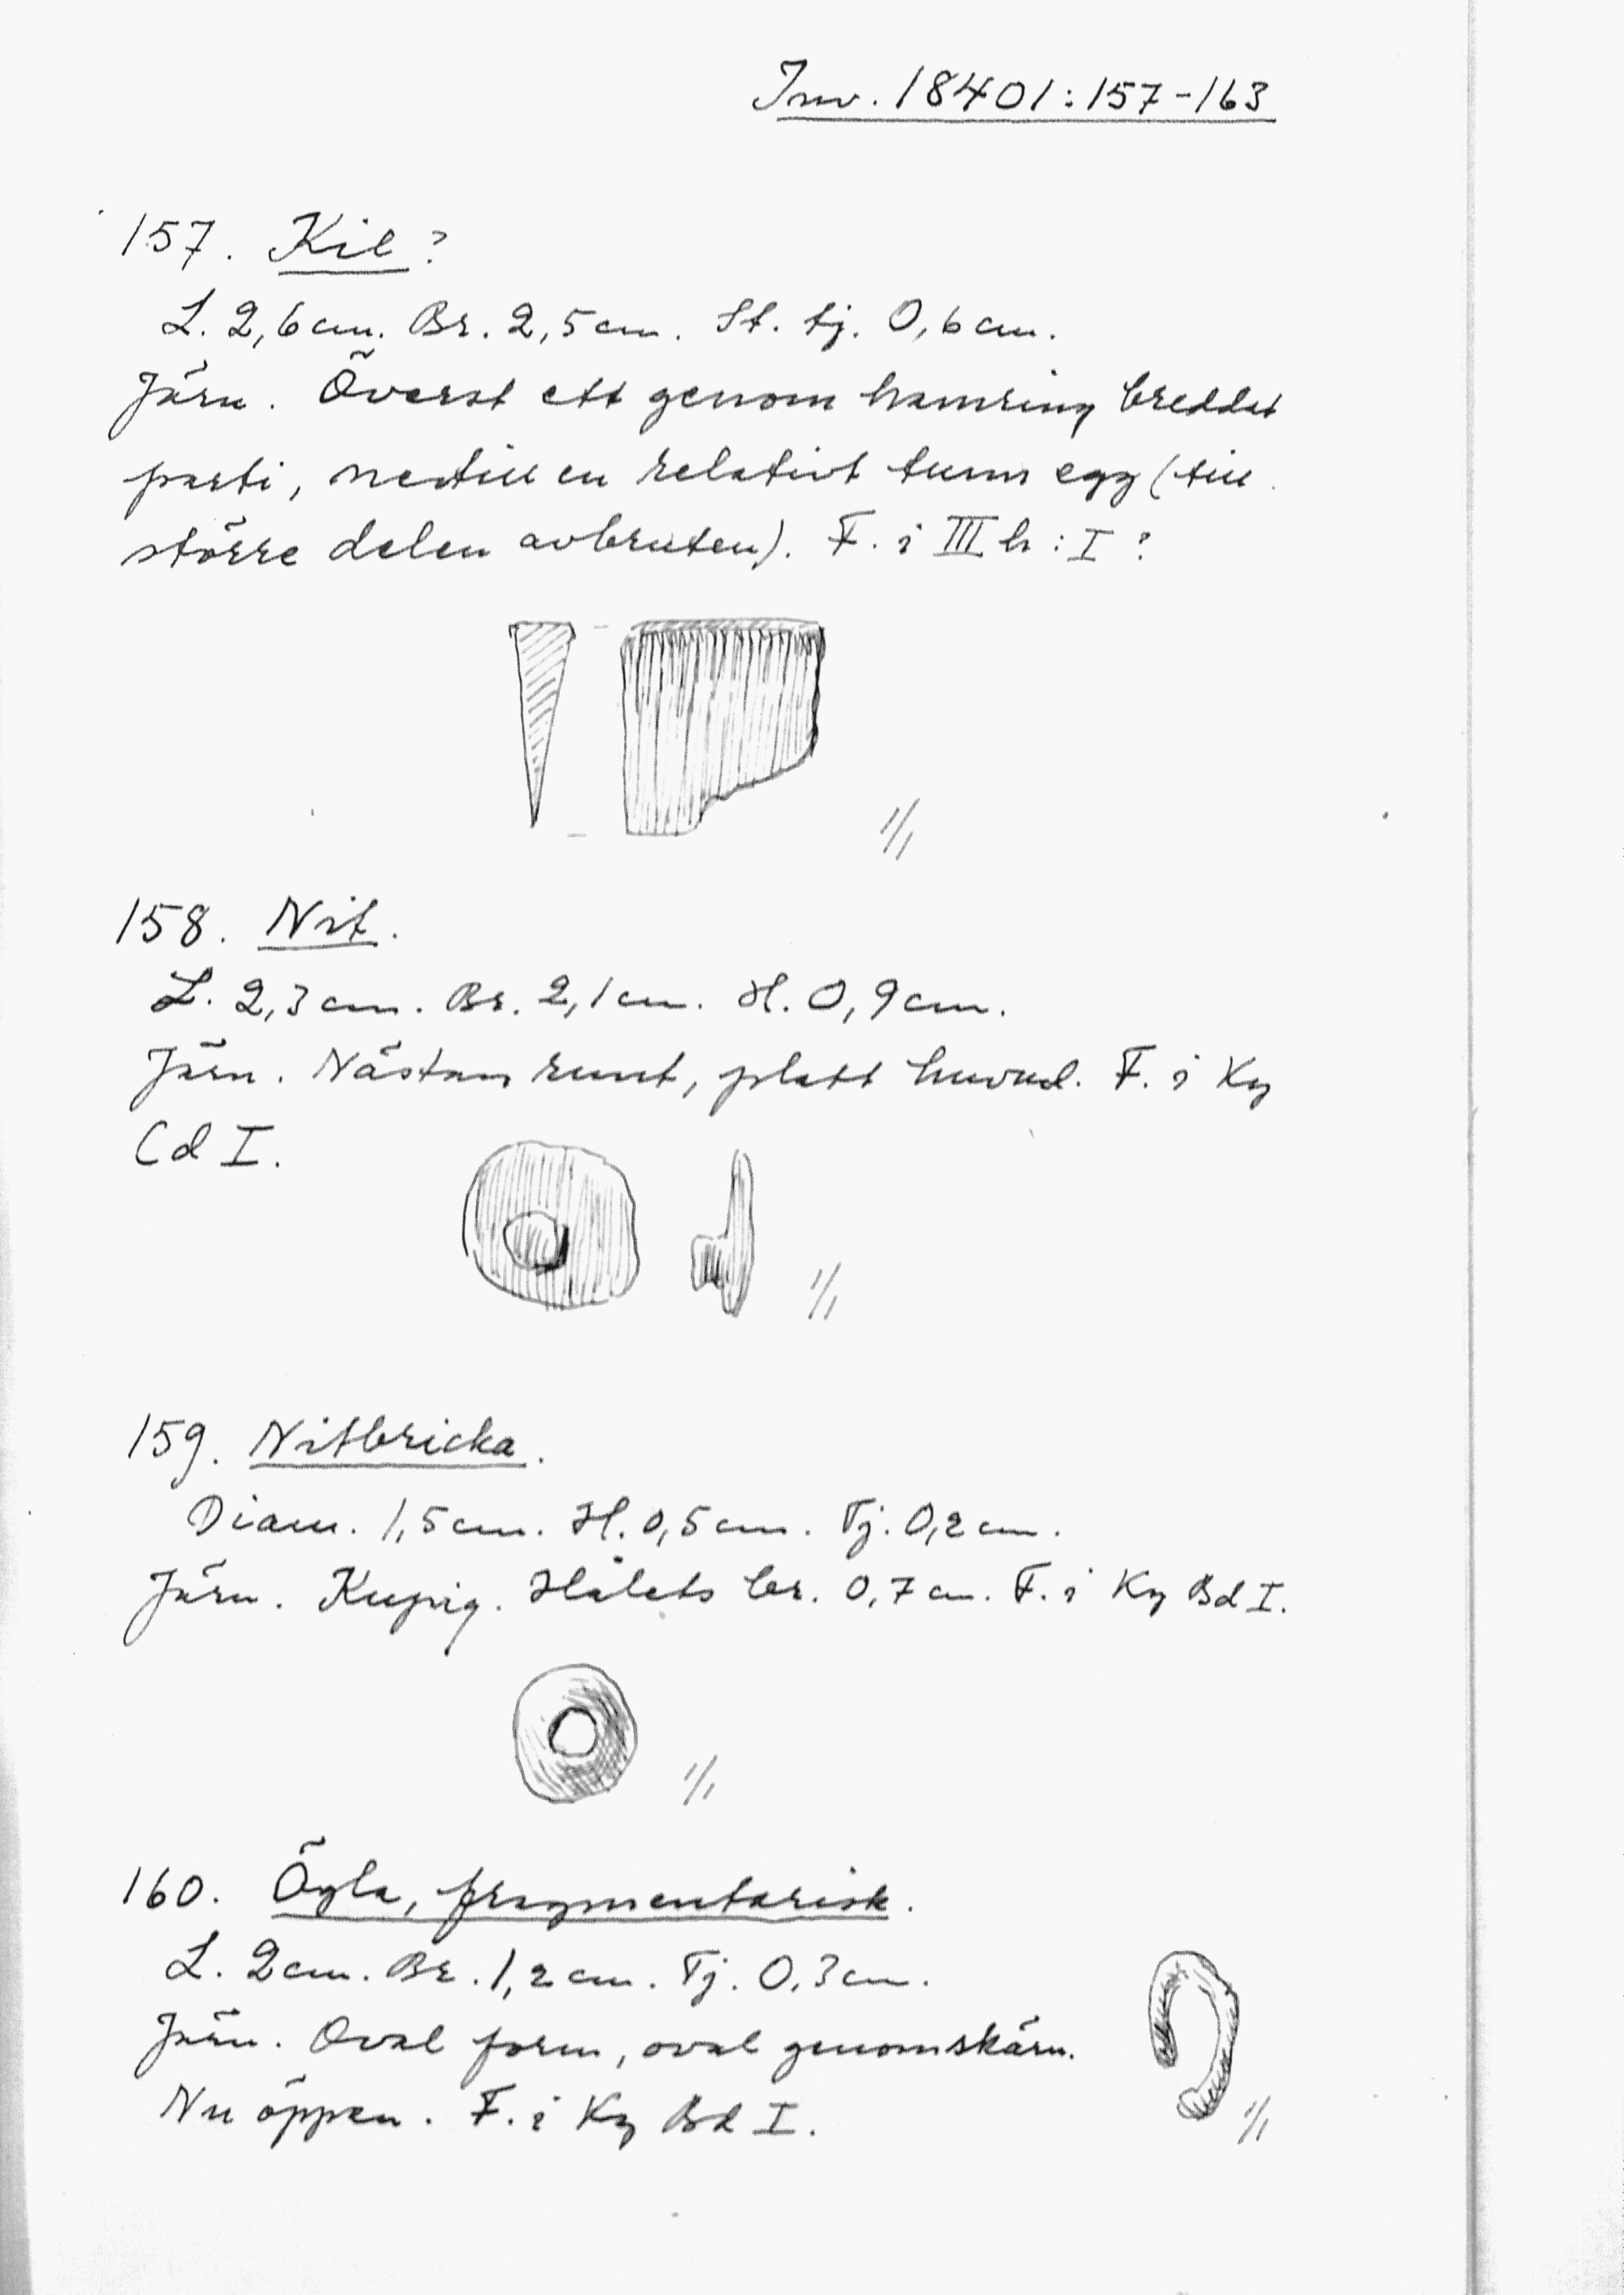 Inv. 18401:157-163
157. Kil?
L. 2,6 cm. Br. 2,5 cm. St. tj. 0,6 cm.
Järn. Överst ett genom hamring breddat
parti, nedtill en relativt tunn egg (till
större delen avbruten). F. i III h : I ?
1/1
158. Nit.
L. 2,3 cm. Br. 2,1 cm. H. 0,9 cm.
Järn. Nästan runt, platt huvud. F. i Ky
Cd I.
1/1
159. Nitbricka.
Diam. 1,5 cm. H. 0,5 cm. Tj. 0,2 cm.
Järn. Kupig. Hålets br. 0,7 cm. F. i Ky Bd I.
1/1
160. Ögla, fragmentarisk.
L. 2 cm. Br. 1,2 cm. Tj. 0,3 cm.
Järn. Oval form, oval genomskärn.
Nu öppen. F. i Ky Bd I.
1/1